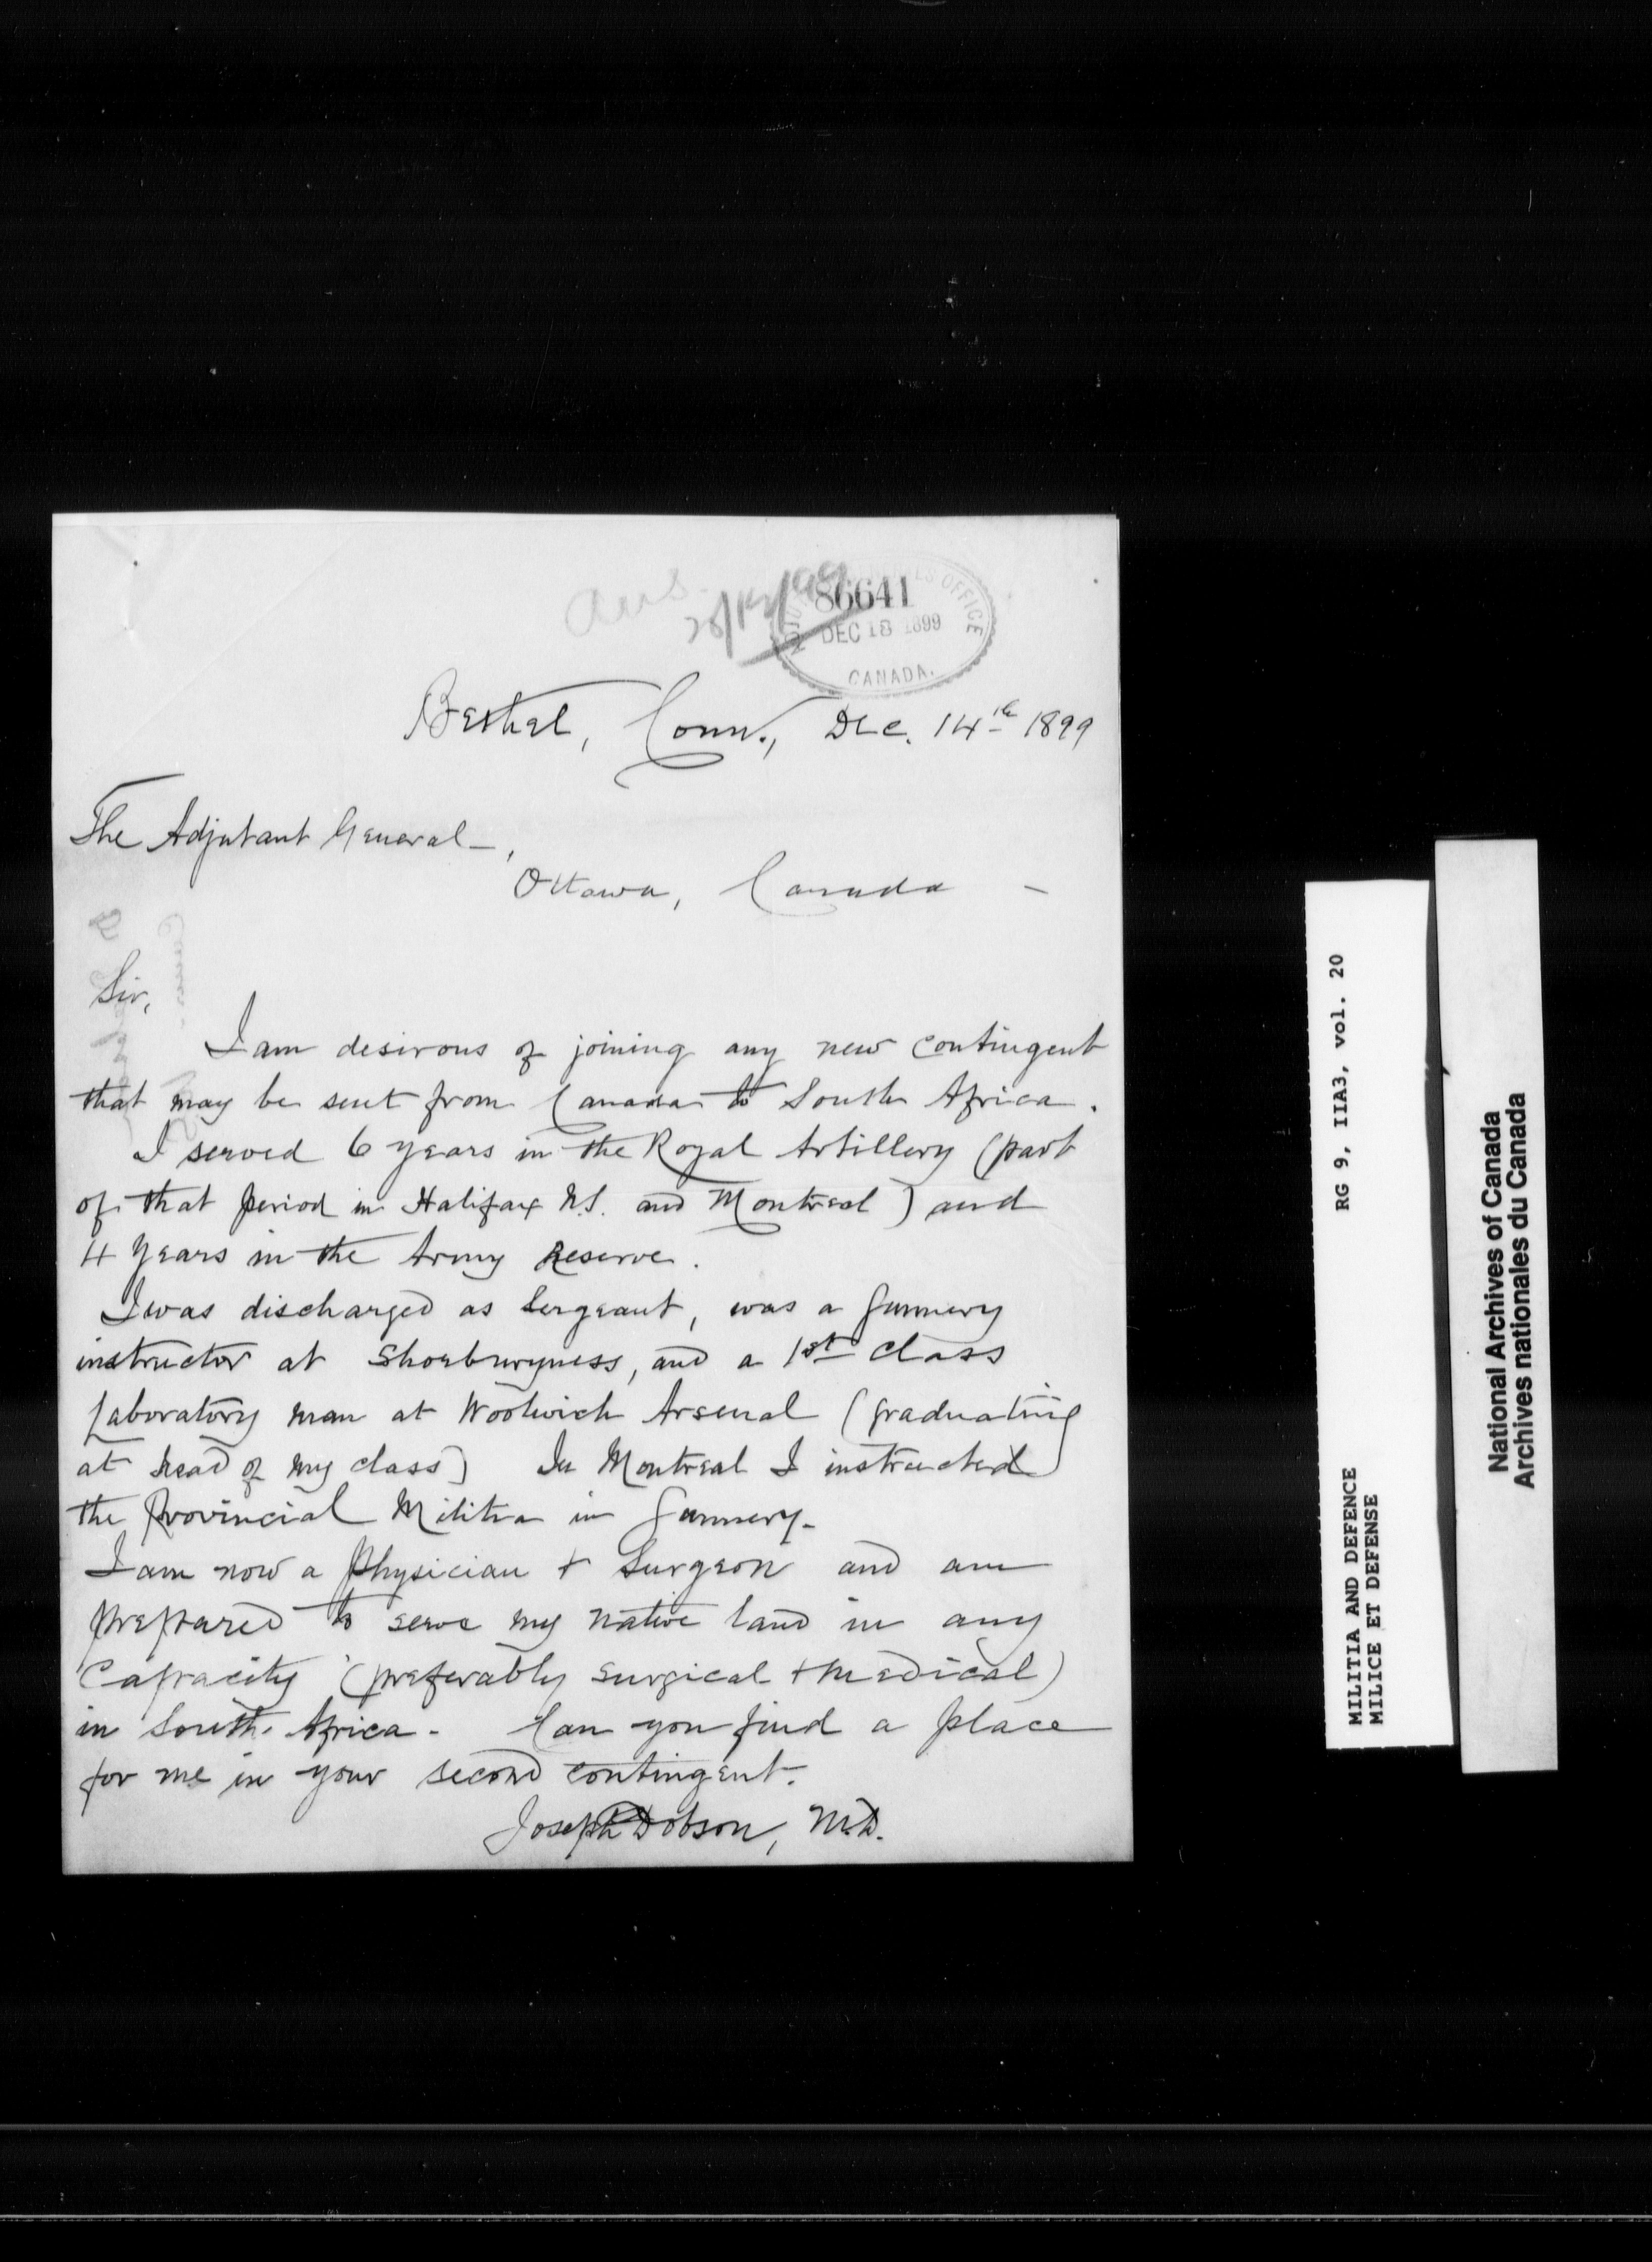 Ans.
28/12/99
86641
OFFICE
DEC 18 1899
CANADA.
Bethel, Conn., Dec. 14th 1899
The Adjutant General -,
Ottawa, Canada -
Sir,
I am desirous of joining any new contingent
that may be sent from Canada to South Africa.
I served 6 years in the Royal Artillery (part
of that period in Halifax N.S. and Montreal) and
4 years in the Army Reserve.
I was discharged as Sergeant, was a Gunnery
instructor at Shoeburyness, and a 1st class
Laboratory man at Woolwich Arsenal (graduating
at head of my class) In Montreal I instructed
the Provincial Militia in Gunnery.
I am now a Physician + Surgeon and am
prepared to serve my native land in any
Capacity (preferably surgical + medical)
in South Africa. Can you find a place
for me in your second contingent.
Joseph Dobson, M.D.
RG 9, IIA3, vol. 20
MILITIA AND DEFENCE
MILICE ET DEFENSE
National Archives of Canada
Archives nationales du Canada